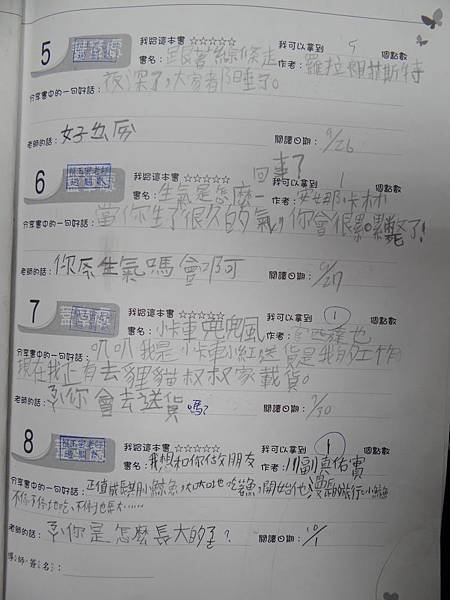 5
我給這本書 ☆☆☆☆☆ 我可以拿到 5 個點數
書名：跟著線條走 作者：羅拉
分享書中的一句好話：夜深了，大家都睡了。
老師的話：好
閱讀日期：9/26
6
我給這本書 ☆☆☆☆☆ 我可以拿到 1 個點數
書名：生氣是怎麼一回事？ 作者：安娜卡林
分享書中的一句好話：當你生了很久的氣，你會很累累斃了！
老師的話：你生氣嗎會
閱讀日期：9/27
7
我給這本書 ☆☆☆☆☆ 我可以拿到 1 個點數
書名：小卡車兜兜風 作者：宮西達也
分享書中的一句好話：叭叭我是小卡車小紅送貨是我的工作
現在我正有去貍貓叔叔家載貨。
老師的話：你會去送貨嗎？
閱讀日期：9/30
8
我給這本書 ☆☆☆☆☆ 我可以拿到 1 個點數
書名：我想和你做朋友 作者：川副真佑實
分享書中的一句好話：正值成長期小鯨魚，大口大口地吃
老師的話：你是怎麼長大的？
閱讀日期：10/1
導師簽名：